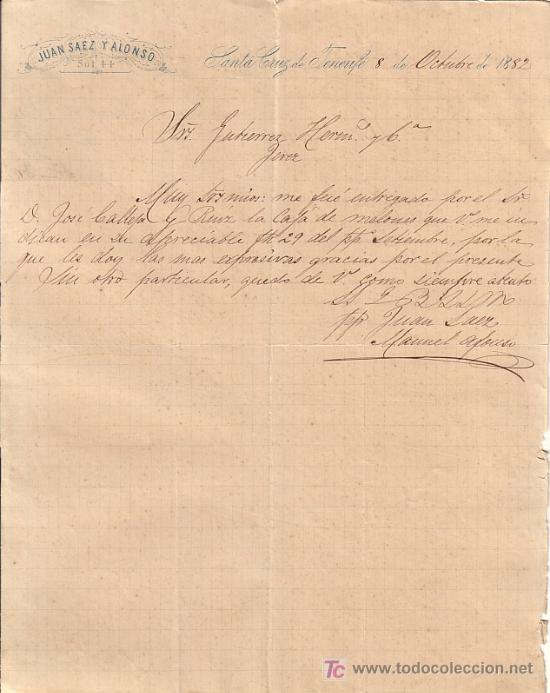 JUAN SAEZ Y ALONSO
Sol 44
Santa Cruz de Tenerife 8 de Octubre de 1882
Srs. Gutierrez Herm.º y C.ª
Jerez
Muy Srs mios: me fué entregado por el Sr
D. José Calleja y Ruiz la caja de melones que Vs. me in
dican en su apreciable fh 29 del pp. Setembre, por la
que les doy las mas expresivas gracias por el presente
Sin otro particular, quedo de Vs. como siempre atento
pp. Juan Saez
Manuel Afonso
TC www.todocoleccion.net